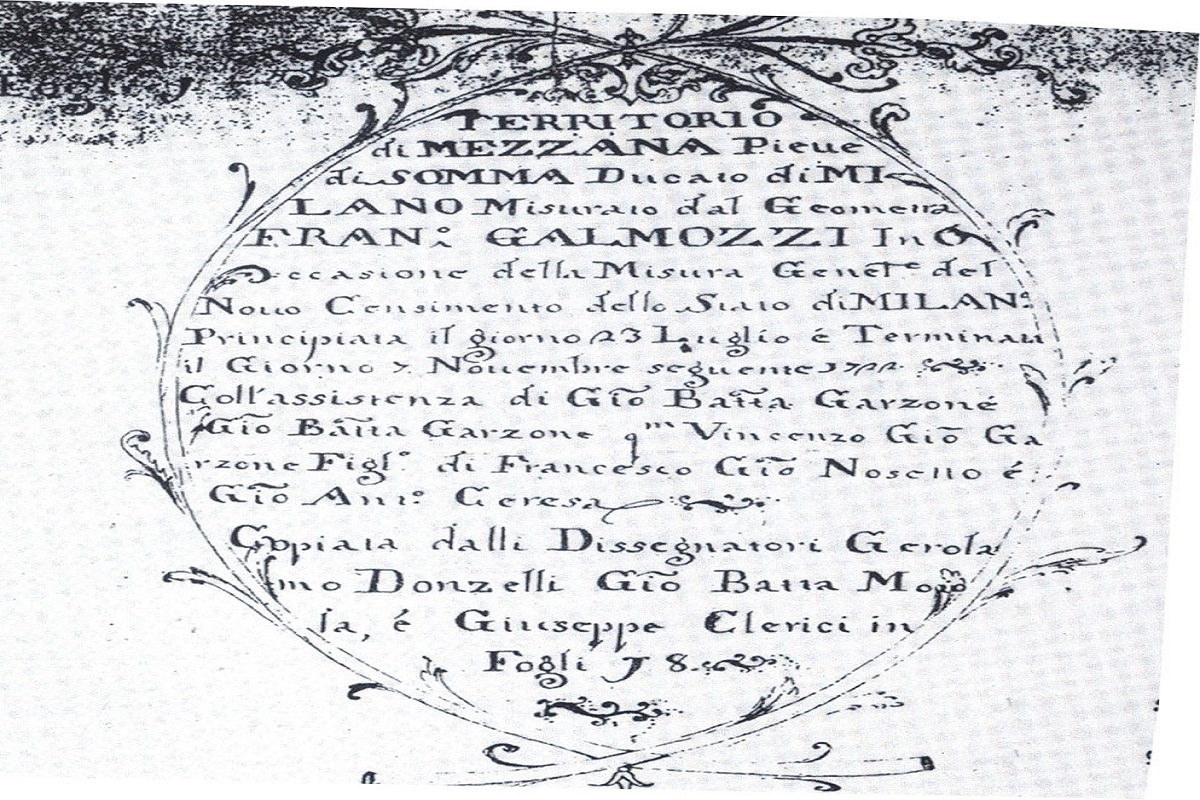 TERRITORIO
di MEZZANA Pieue
di SOMMA Ducato di MI
LANO Misurato dal Geometra
FRAN.ᶜᵒ GALMOZZI In O
ccasione della Misura Gener.ˡᵉ del
Nouo Censimento dello Stato di MILAN.º
Principiata il giorno 23 Luglio é Terminata
il Giorno 7. Nouembre seguente 1722.
Coll'assistenza di Gio Batta Garzoné
Gio Batta Garzone qᵐ Vincenzo Gio Ga
rzone Figl.º di Francesco Gio Nosetto é
Gio Ant.º Ceresa
Coppiata dalli Dissegnatori Gerola
mo Donzelli Gio Batta Mojo
la, é Giuseppe Clerici in
Fogli 18.